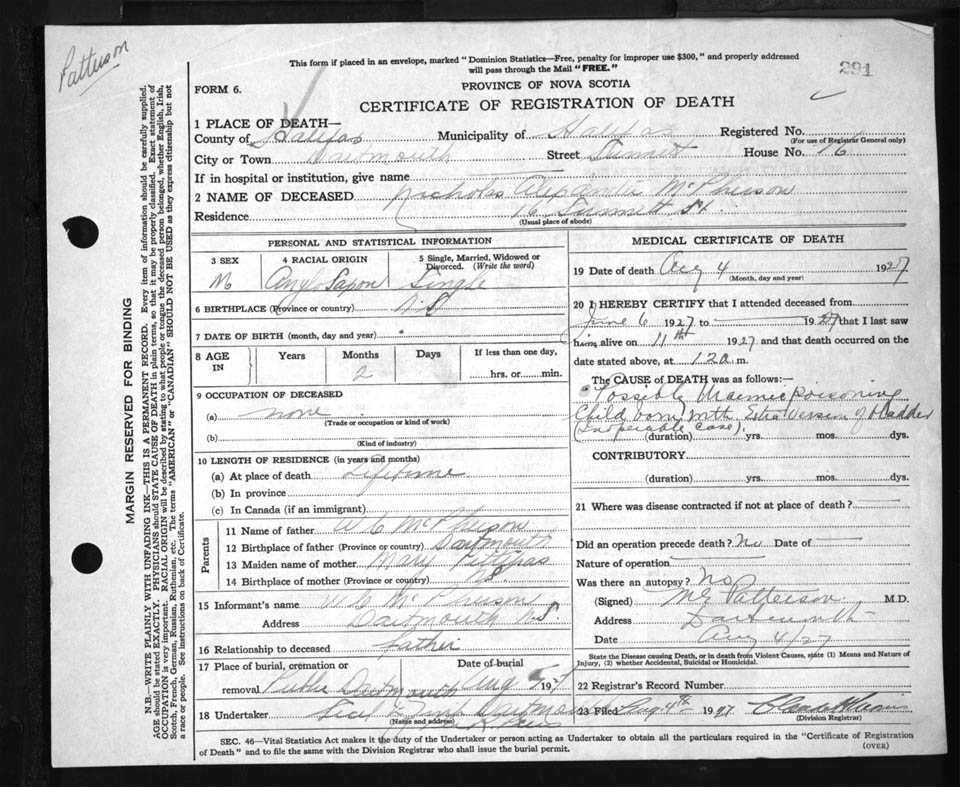 Patterson
This form if placed in an envelope, marked "Dominion Statistics—Free, penalty for improper use $300," and properly addressed
will pass through the Mail "FREE."
291
FORM 6.
PROVINCE OF NOVA SCOTIA
CERTIFICATE OF REGISTRATION OF DEATH
1 PLACE OF DEATH—
County of Halifax Municipality of Halifax Registered No.
(For use of Registrar General only)
City or Town Dartmouth Street Summit House No. 16
If in hospital or institution, give name
2 NAME OF DECEASED Nicholas McPherson
Residence 16 Summit St.
(Usual place of abode)
PERSONAL AND STATISTICAL INFORMATION
3 SEX 4 RACIAL ORIGIN 5 Single, Married, Widowed or
Divorced. (Write the word)
M Anglo Saxon Single
6 BIRTHPLACE (Province or country) N.S
7 DATE OF BIRTH (month, day and year)
8 AGE IN Years Months Days If less than one day,
2 hrs. or min.
9 OCCUPATION OF DECEASED
(a) none
(Trade or occupation or kind of work)
(b)
(Kind of industry)
10 LENGTH OF RESIDENCE (in years and months)
(a) At place of death Lifetime
(b) In province
(c) In Canada (if an immigrant)
Parents
11 Name of father W C McPherson
12 Birthplace of father (Province or country) Dartmouth
13 Maiden name of mother Mary Pettipas
14 Birthplace of mother (Province or country) N.S.
15 Informant's name W C McPherson
Address Dartmouth N.S.
16 Relationship to deceased father
17 Place of burial, cremation or Date of burial
removal Public Dartmouth Aug 5 1927
18 Undertaker Dartmouth
(Name and address)
MEDICAL CERTIFICATE OF DEATH
19 Date of death Aug 4 1927
(Month, day and year)
20 I HEREBY CERTIFY that I attended deceased from
June 6 1927 to 1927 that I last saw
him alive on 11th 1927 and that death occurred on the
date stated above, at 12 a.m.
The CAUSE OF DEATH was as follows:—
Possible Uraemic poisoning
Child born with Extroversion of Bladder
(Inoperable Case).
(duration) yrs. mos. dys.
CONTRIBUTORY
(duration) yrs. mos. dys.
21 Where was disease contracted if not at place of death?
Did an operation precede death? No Date of
Nature of operation
Was there an autopsy? No
(Signed) Patterson M.D.
Address Dartmouth
Date Aug 4/27
State the Disease causing Death, or in death from Violent Causes, state (1) Means and Nature of
Injury, (2) whether Accidental, Suicidal or Homicidal.
22 Registrar's Record Number
23 Filed Aug 4th 1927
(Division Registrar)
SEC. 46—Vital Statistics Act makes it the duty of the Undertaker or person acting as Undertaker to obtain all the particulars required in the "Certificate of Registration
of Death" and to file the same with the Division Registrar who shall issue the burial permit.
(OVER)
MARGIN RESERVED FOR BINDING
N.B.—WRITE PLAINLY WITH UNFADING INK—THIS IS A PERMANENT RECORD. Every item of information should be carefully supplied.
AGE should be stated EXACTLY. PHYSICIANS should STATE CAUSE OF DEATH in plain terms, so that it may be properly classified. Exact statement of
OCCUPATION is very important. RACIAL ORIGIN will be described by stating to what people or tongue the deceased person belonged, whether English, Irish,
Scotch, French, German, Russian, Ruthenian, etc. The terms "AMERICAN" or "CANADIAN" SHOULD NOT BE USED as they express citizenship but not
a race or people. See instructions on back of Certificate.